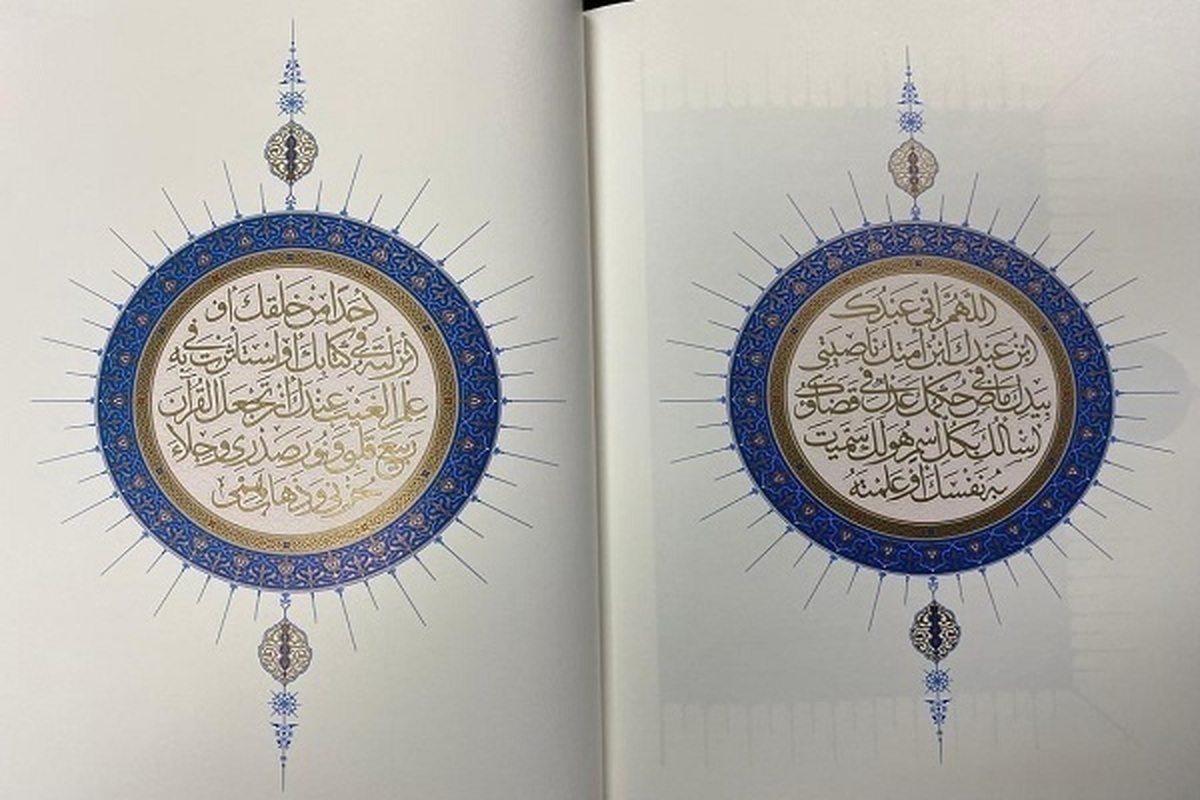 اللّهُمَّ إنّي عَبدُكَ
ابنُ عَبدِكَ ابنُ أمَتِكَ نَاصِيَتي
بِيَدِكَ مَاضٍ فيَّ حُكمُكَ عَدلٌ فيَّ قَضَاؤُكَ
أسألُكَ بكلِّ اسمٍ هُوَ لَكَ سَمَّيتَ
بِهِ نَفسَكَ أوْ عَلَّمتَهُ
أحَدًا مِنْ خَلقِكَ أوْ
أنزَلتَهُ في كِتَابِكَ أوِ استَأثَرتَ بِهِ في
عِلمِ الغَيبِ عِندَكَ أنْ تَجعَلَ القُرآنَ
رَبيعَ قَلبي وَنُورَ صَدري وَجَلَاءَ
حُزني وَذَهَابَ هَمّي